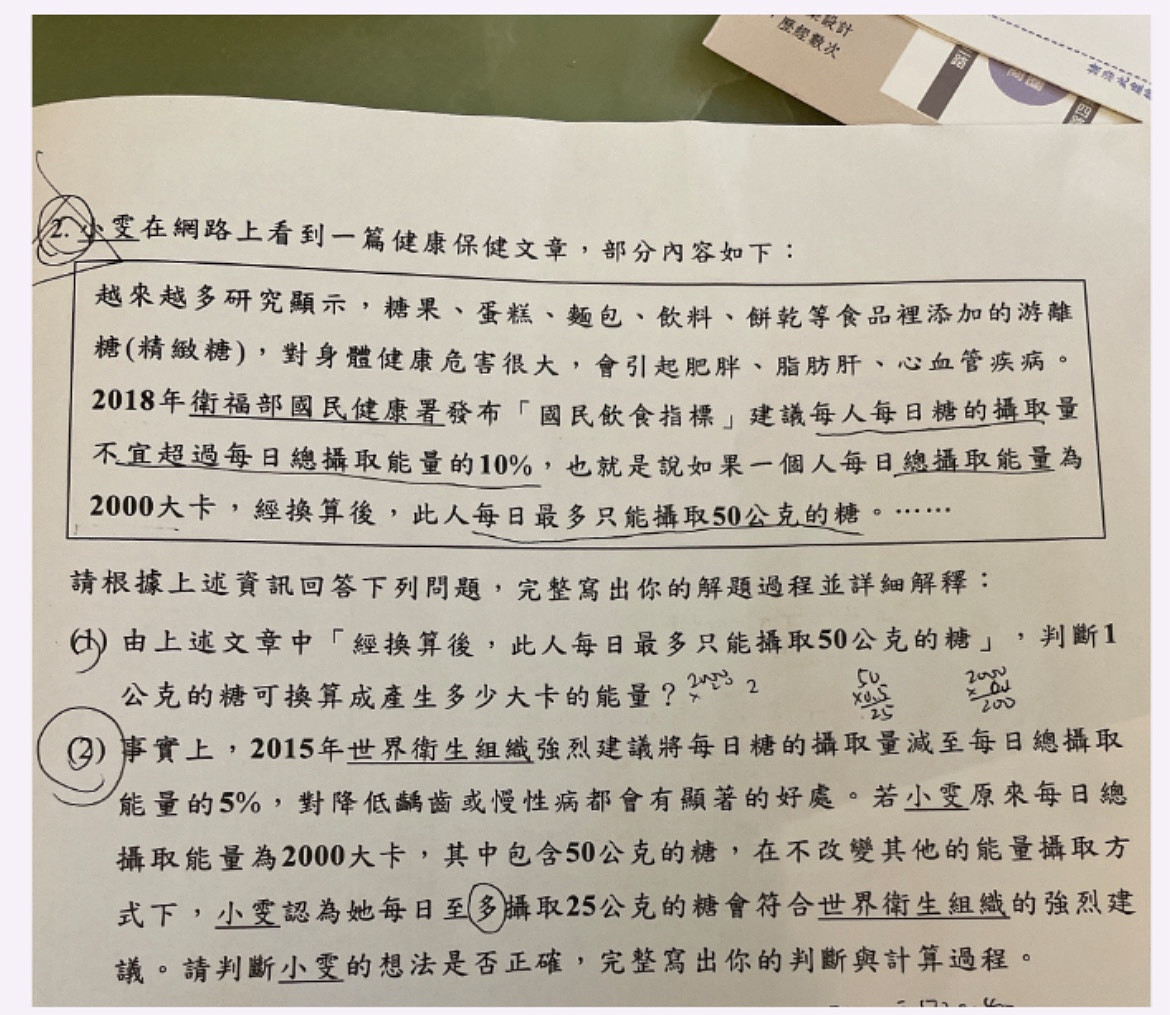 設計
，歷經數次
2. 小雯在網路上看到一篇健康保健文章，部分內容如下：
越來越多研究顯示，糖果、蛋糕、麵包、飲料、餅乾等食品裡添加的游離
糖(精緻糖)，對身體健康危害很大，會引起肥胖、脂肪肝、心血管疾病。
2018年衛福部國民健康署發布「國民飲食指標」建議每人每日糖的攝取量
不宜超過每日總攝取能量的10%，也就是說如果一個人每日總攝取能量為
2000大卡，經換算後，此人每日最多只能攝取50公克的糖。……
請根據上述資訊回答下列問題，完整寫出你的解題過程並詳細解釋：
(1) 由上述文章中「經換算後，此人每日最多只能攝取50公克的糖」，判斷1
公克的糖可換算成產生多少大卡的能量？
50
x0.5
25
2000
200
(2) 事實上，2015年世界衛生組織強烈建議將每日糖的攝取量減至每日總攝取
能量的5%，對降低齲齒或慢性病都會有顯著的好處。若小雯原來每日總
攝取能量為2000大卡，其中包含50公克的糖，在不改變其他的能量攝取方
式下，小雯認為她每日至多攝取25公克的糖會符合世界衛生組織的強烈建
議。請判斷小雯的想法是否正確，完整寫出你的判斷與計算過程。